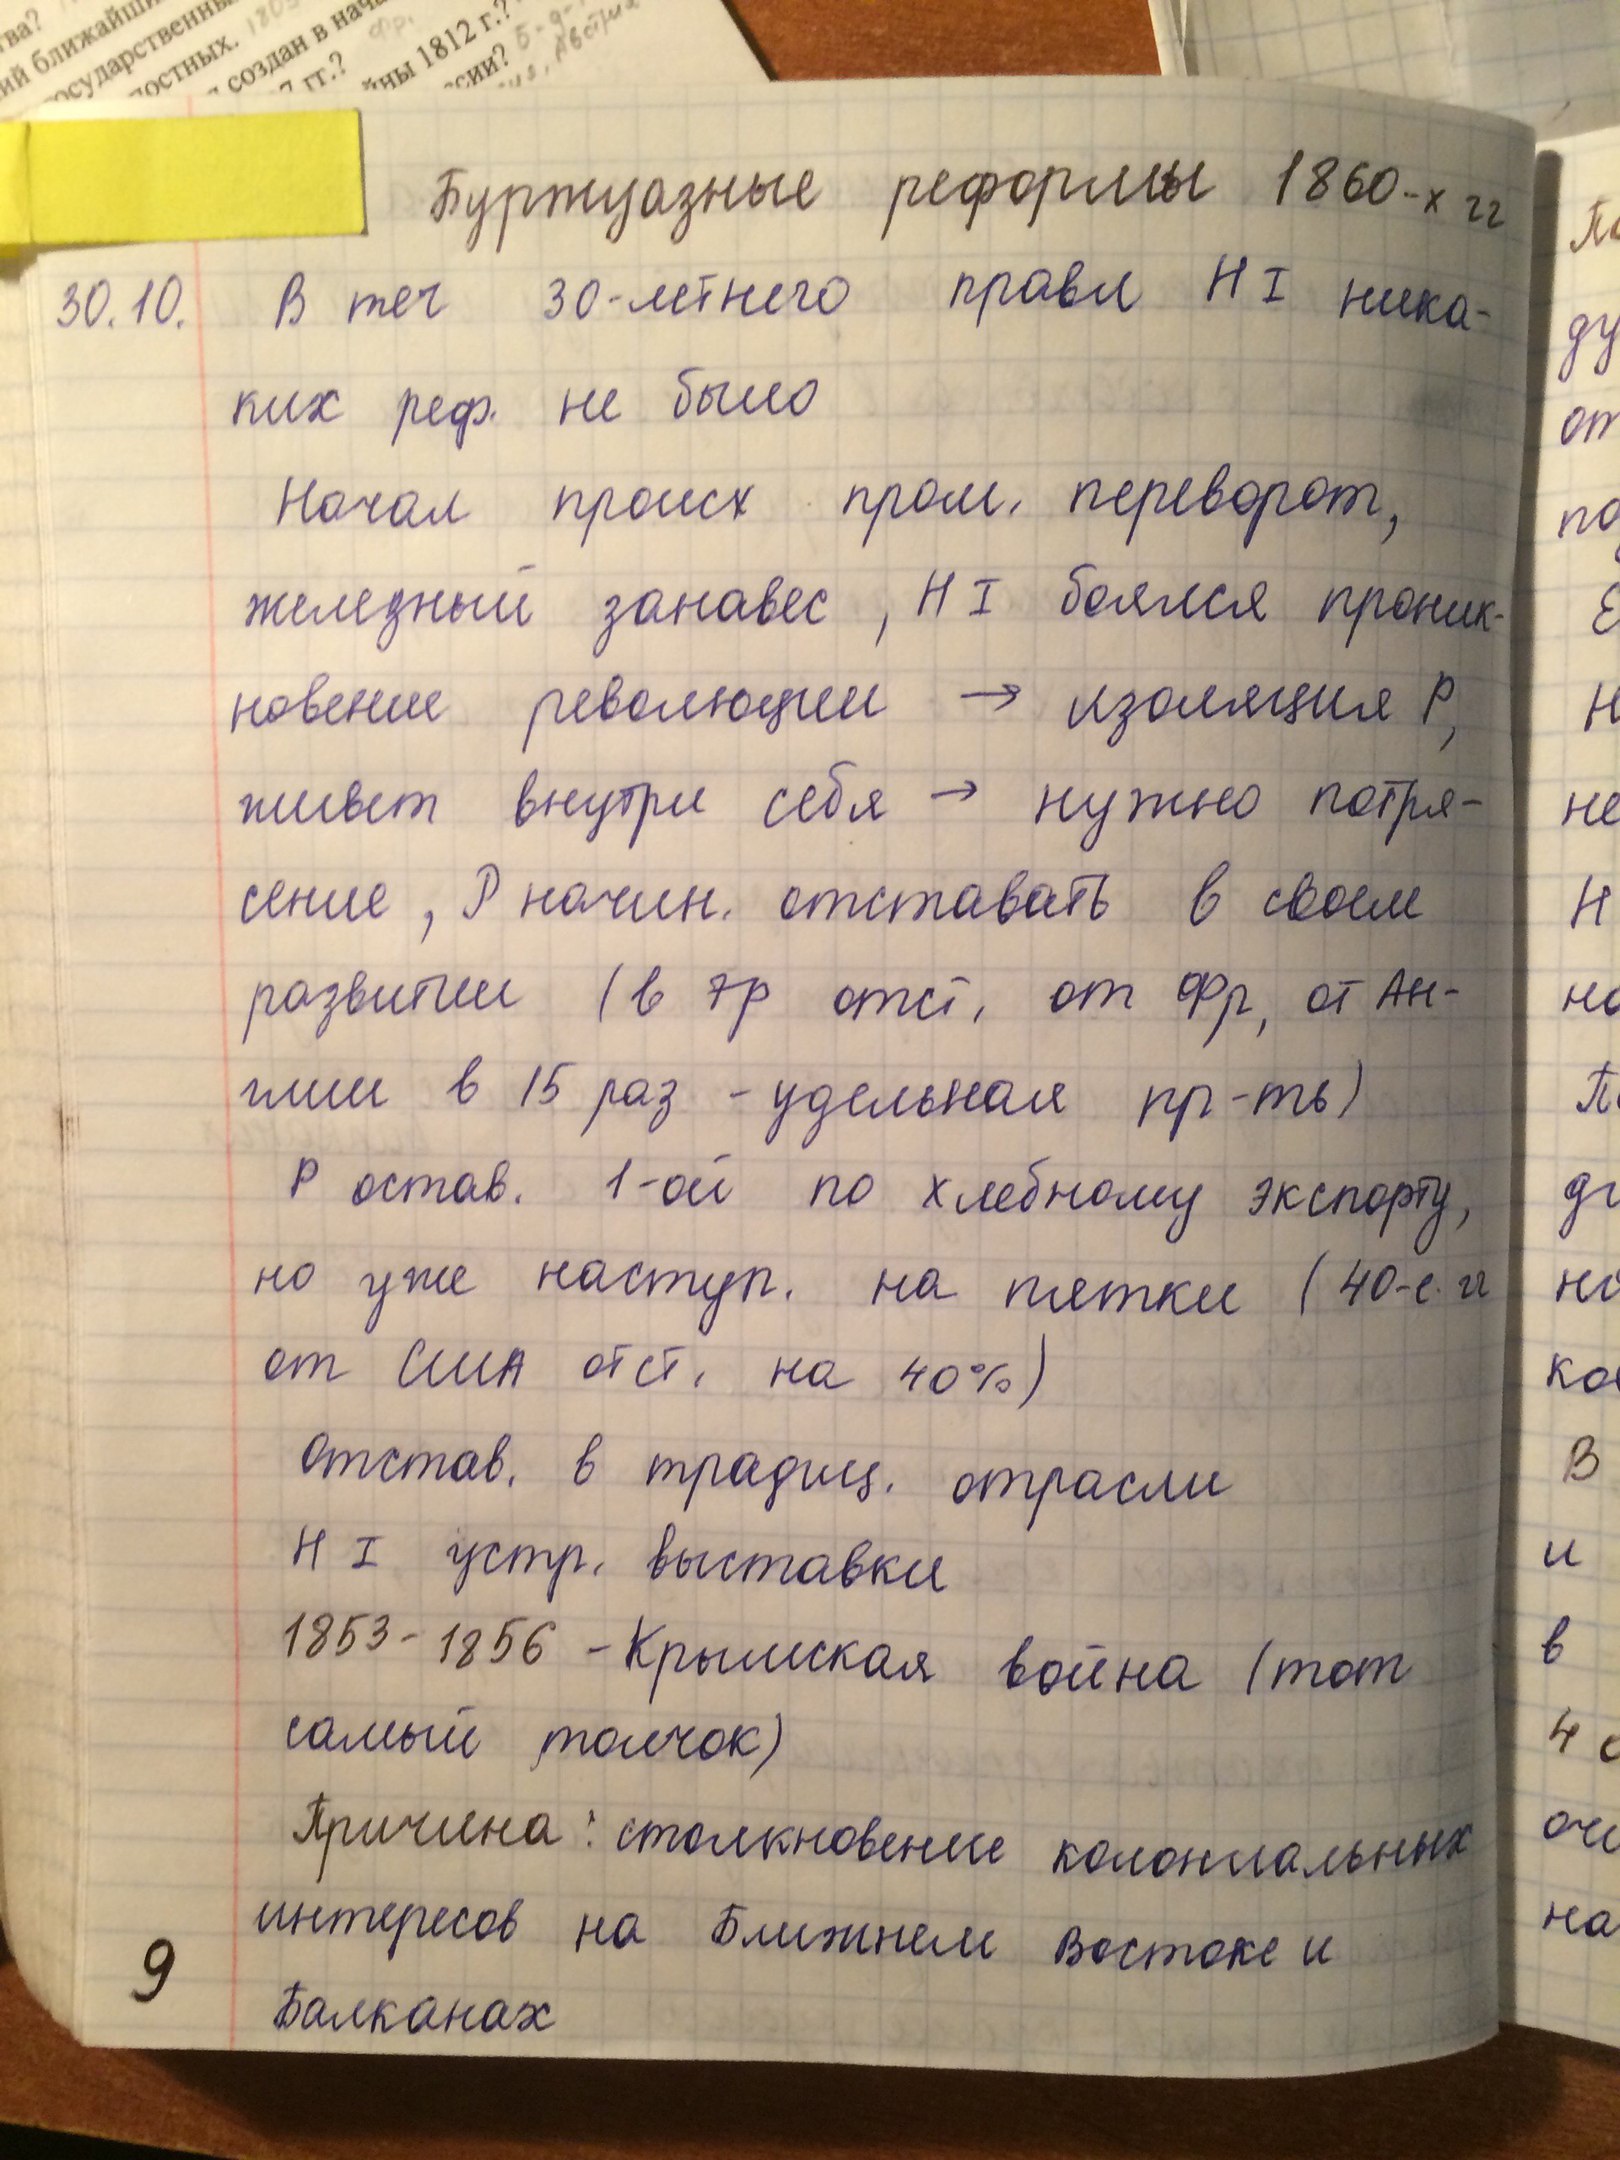 ний ближайши
государственны
постных.
создан в нача
7 гг.?
йны 1812 г.?
ссии?
Буржуазные реформы 1860-х гг
30.10. В теч 30-летнего правл Н I ника-
ких реф. не было
Начал происх пром. переворот,
железный занавес, Н I боялся проник-
новение революции → изоляция Р,
живет внутри себя → нужно потря-
сение, Р начин. отставать в своем
развитии (в 7р отст. от Фр, от Ан-
глии в 15 раз - удельная пр-ть)
Р остав. 1-ой по хлебному экспорту,
но уже наступ. на пятки (40-е гг
от США отст. на 40%)
Отстав. в традиц. отрасли
Н I устр. выставки
1853-1856 - Крымская война (тот
самый толчок)
Причина: столкновение колониальных
интересов на Ближнем Востоке и
Балканах
9